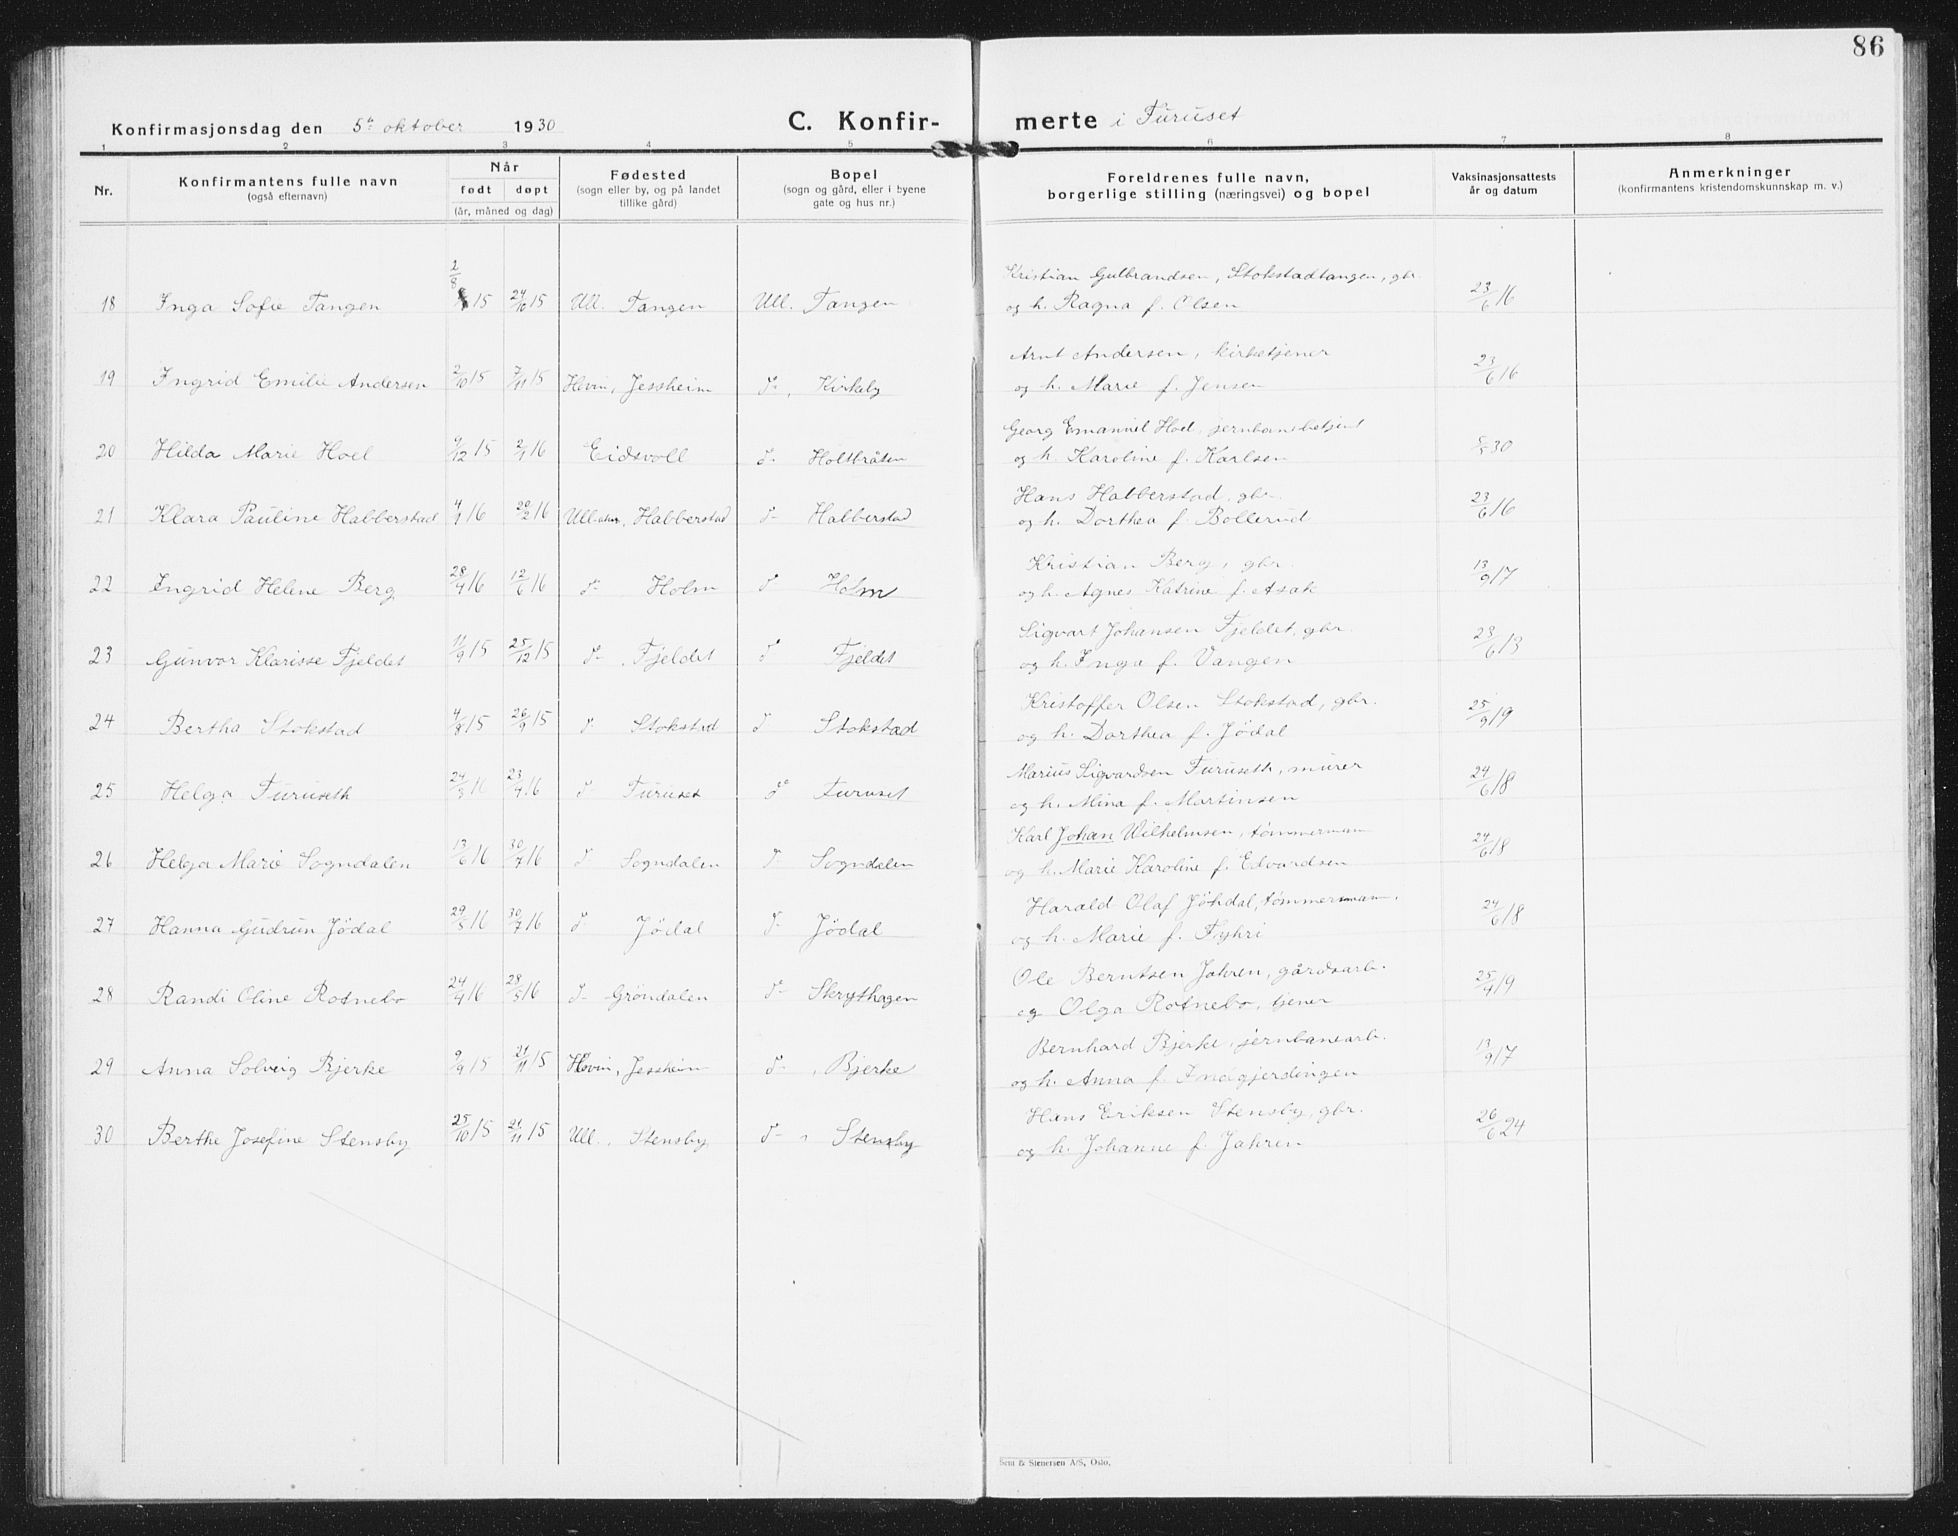 86
Konfirmasjonsdag den 5te oktober 1930 C. Konfir- merte i Furuset
1 2 3 4 5 6 7 8
Nr. Konfirmantens fulle navn (også efternavn) Når født døpt (år, måned og dag) Fødested (sogn eller by, og på landet tillike gård) Bopel (sogn og gård, eller i byene gate og hus nr.) Foreldrenes fulle navn, borgerlige stilling (næringsvei) og bopel Vaksinasjonsattests år og datum Anmerkninger (konfirmantens kristendomskunnskap m. v.)
Kristian Gulbrandsen, Stokstadtangen, gbr.
18 Inga Sofie Tangen 2/8 15 24/10 15 Ull. Tangen Ull. Tangen og h. Ragna f. Olsen 23/6 16
Arnt Andersen, kirketjener
19 Ingrid Emilie Andersen 2/10 15 7/11 15 Hovin, Jessheim d-, Kirkeby og h. Marie f. Jensen 23/6 16
Georg Emanuel Hoel, jernbanebetjent
20 Hilda Marie Hoel 9/12 15 2/1 16 Eidsvoll d- Holtbråten og h. Karoline f. Karlsen 30
Hans Habberstad, gbr.
21 Klara Pauline Habberstad 4/1 16 20/2 16 Habberstad d- Habberstad og h. Dorthea f. Bollerud 23/6 16
Kristian Berg, gbr.
22 Ingrid Helene Berg 28/4 16 12/6 16 d- Holm d- Holm og h. Agnes Katrine f. Asak 13/9 17
Sigvart Johansen Fjeldet, gbr.
23 Gunvor Klarisse Fjeldet 11/9 15 25/12 15 d-, Fjeldet d- Fjeldet og h. Inga f. Vangen 23/6 13
Kristoffer Olsen Stokstad, gbr.
24 Bertha Stokstad 4/8 15 26/9 15 d- Stokstad d- Stokstad og h. Dorthea f. Jödal 25/9 19
Marius Sigvardsen Furuseth, murer
25 Helga Furuseth 24/3 16 23/4 16 d- Furuset d- Furuset og h. Mina f. Martinsen 24/6 18
Karl Johan Wilhelmsen, tømmermann
26 Helga Marie Sogndalen 13/6 16 30/7 16 d- Sogndalen d- Sogndalen og h. Marie Karoline f. Edvardsen 24/6 18
Harald Olaf Jöhdal, tømmermann.
27 Hanna Gudrun Jödal 29/5 16 30/7 16 d- Jödal d- Jödal og h. Marie f. Fyhri 24/6 18
Ole Berntsen Jahren, gårdsarb.
28 Randi Oline Rotnebo 24/4 16 28/5 16 d- Gröndalen d- Skrythagen og Olga Rotnebo, tjener 25/4 19
Bernhard Bjerke, jernbanearb.
29 Anna Solveig Bjerke 9/9 15 21/11 15 Hovin, Jessheim d-, Bjerke og h. Anna f. Indgjerdingen 13/9 17
Hans Eriksen Stensby, gbr.
30 Berthe Josefine Stensby 25/10 15 21/11 15 Ull., Stensby d-, Stensby og h. Johanne f. Jahren 26/6 24
Sem & Stenersen A/S, Oslo.